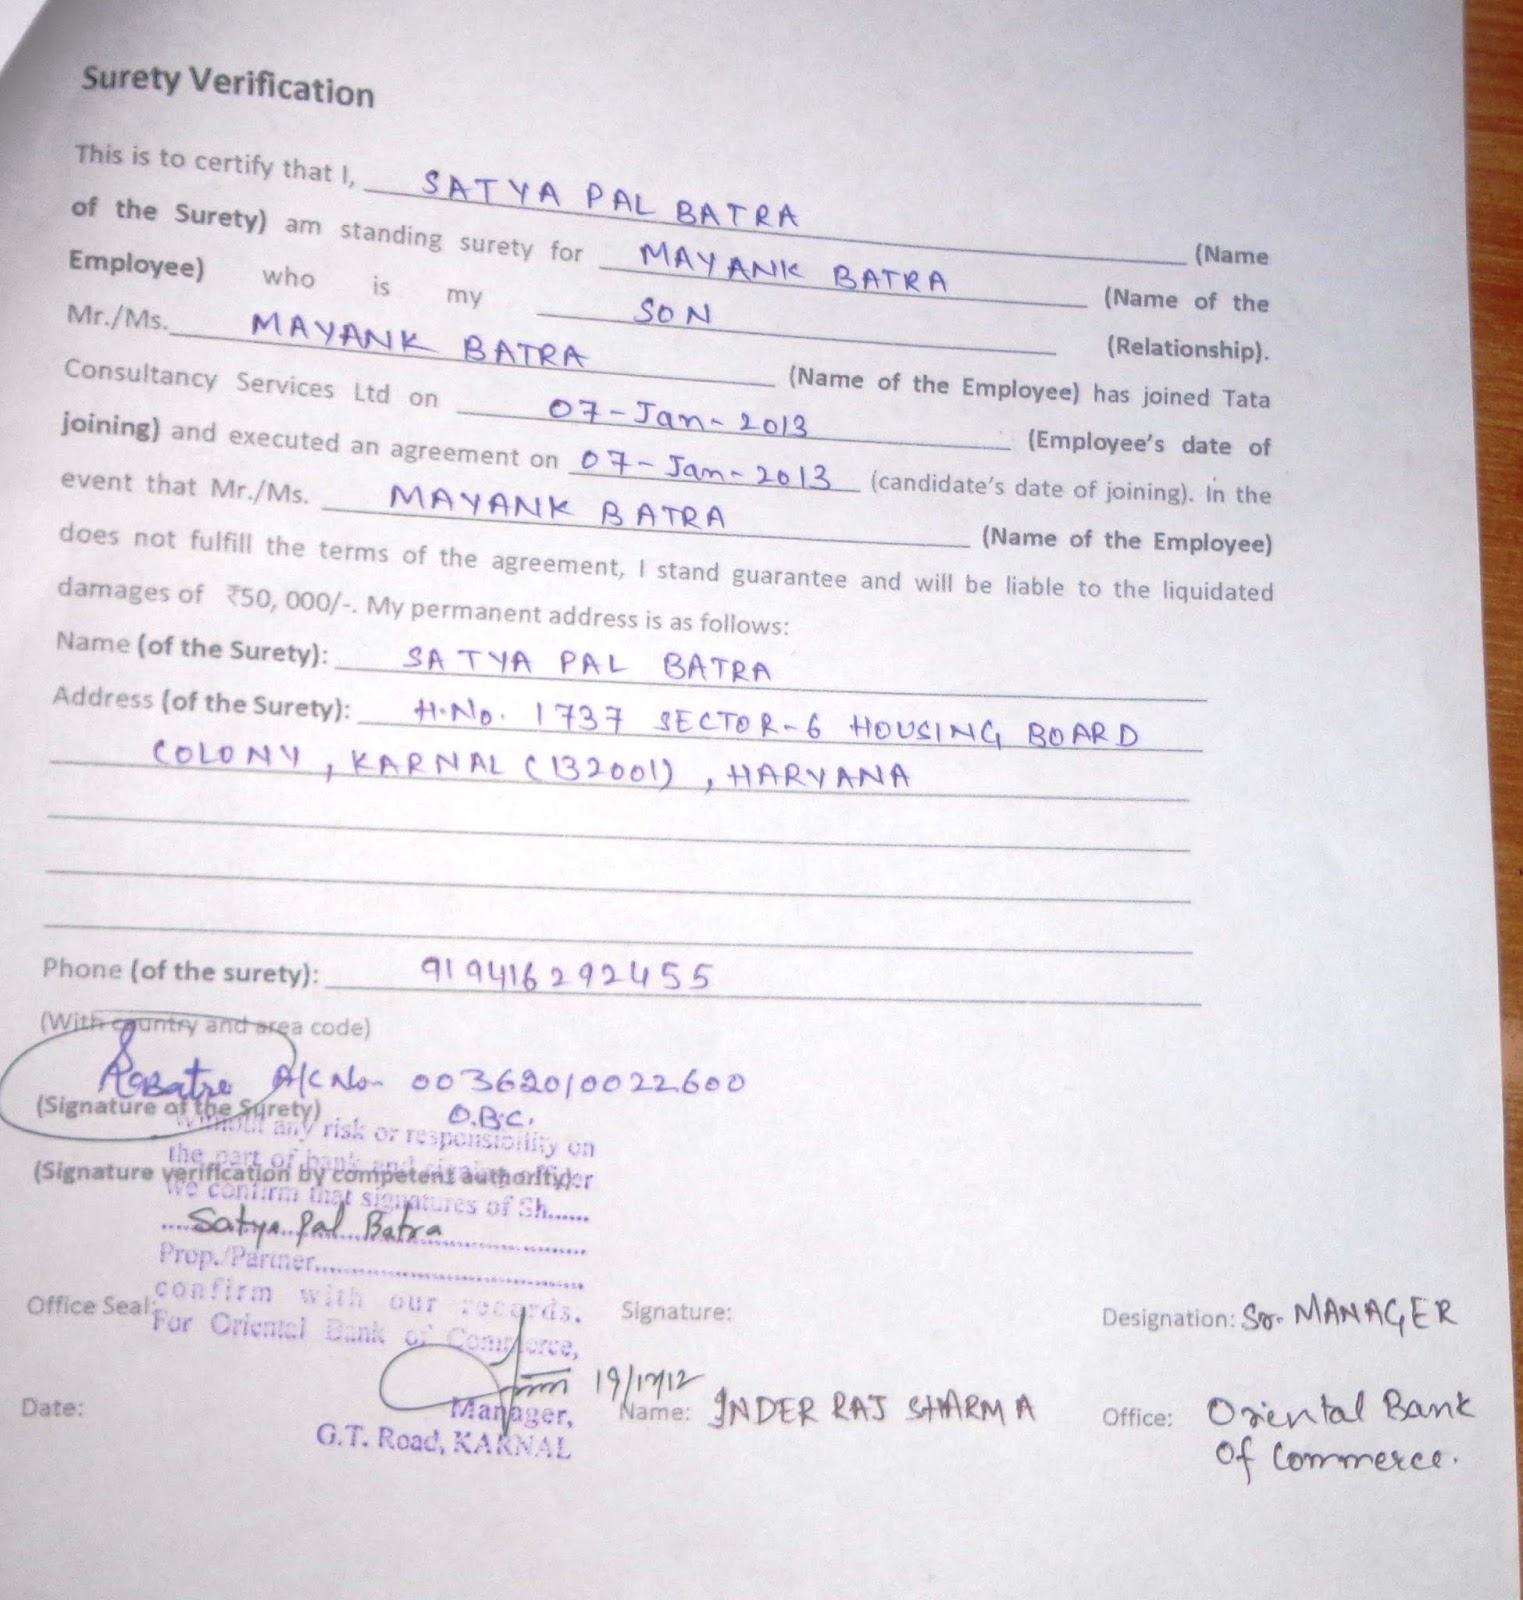 Surety Verification
This is to certify that I, SATYA PAL BATRA (Name
of the Surety) am standing surety for MAYANK BATRA (Name of the
Employee) who is my SON (Relationship).
Mr./Ms. MAYANK BATRA (Name of the Employee) has joined Tata
Consultancy Services Ltd on 07-Jan-2013 (Employee's date of
joining) and executed an agreement on 07-Jan-2013 (candidate's date of joining). In the
event that Mr./Ms. MAYANK BATRA (Name of the Employee)
does not fulfill the terms of the agreement, I stand guarantee and will be liable to the liquidated
damages of ₹50, 000/-. My permanent address is as follows:
Name (of the Surety): SATYA PAL BATRA
Address (of the Surety): H.No. 1737 SECTOR-6 HOUSING BOARD
COLONY, KARNAL (132001), HARYANA
Phone (of the surety): 919416292455
(With country and area code)
A/C No- 00362010022600
(Signature of the Surety) O.B.C.
Without any risk or responsibility on
the part of bank and
(Signature verification by competent authority):
We confirm that signatures of Sh......
Satya Pal Batra
Prop./Partner
confirm with our records.
Office Seal: Signature: Designation: Sr. MANAGER
For Oriental Bank of Commerce,
19/12/12
Date: Manager, Name: INDER RAJ SHARMA Office: Oriental Bank
G.T. Road, KARNAL Of Commerce.